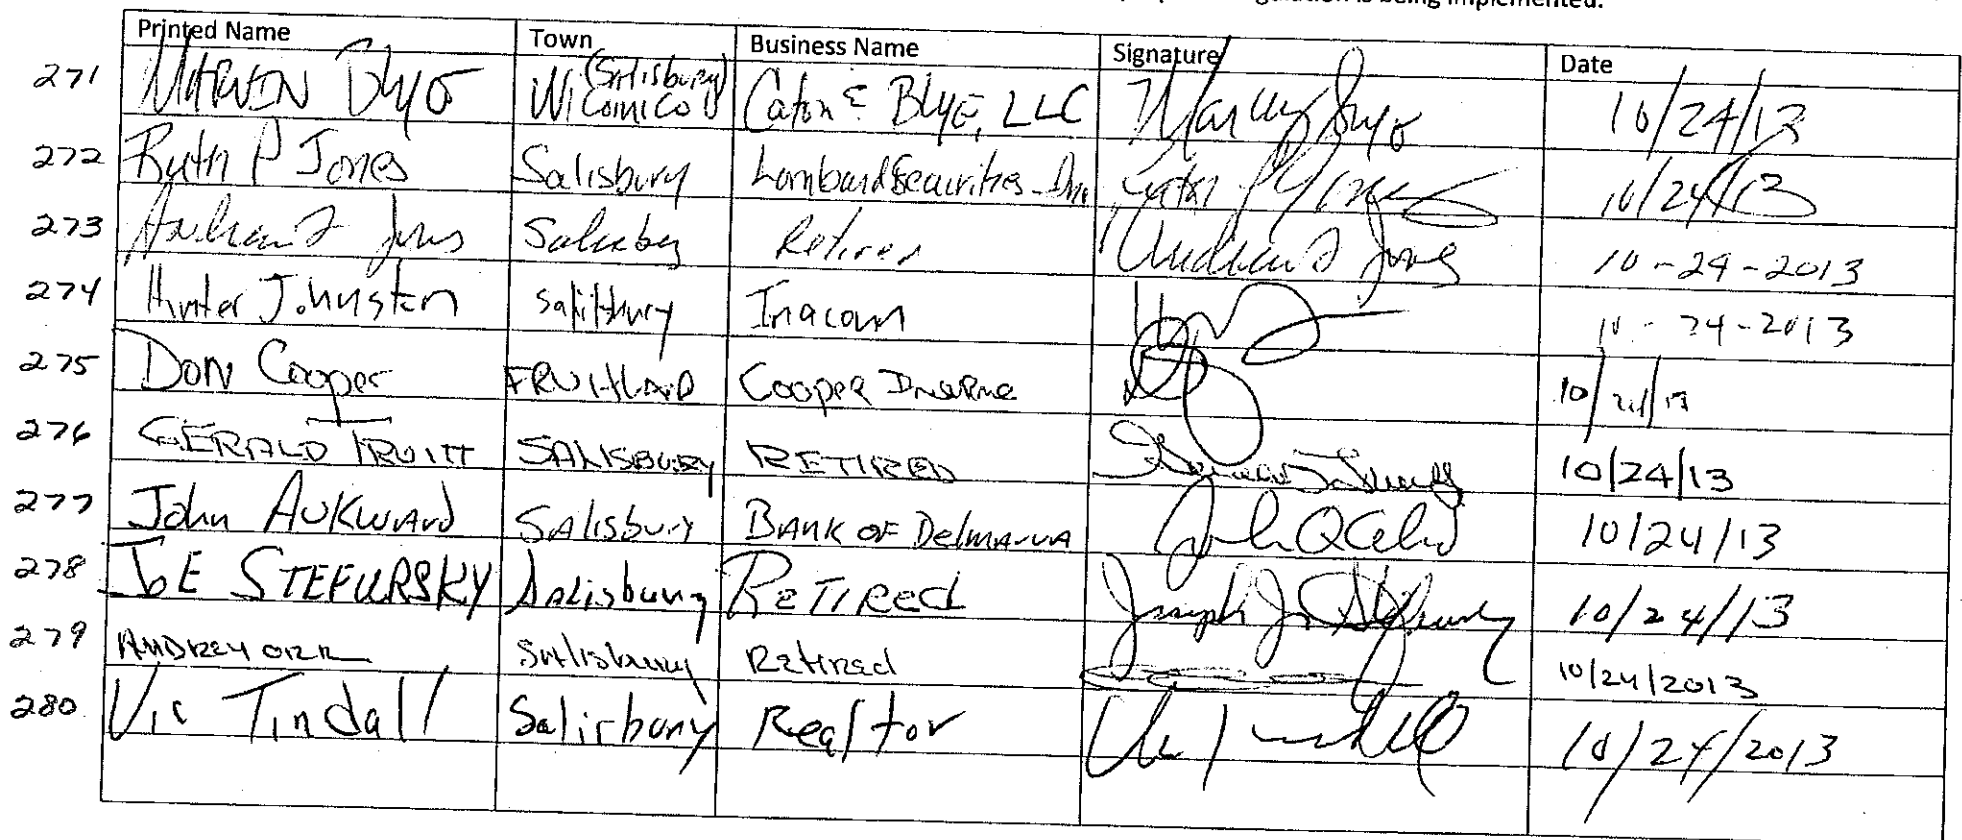 gulation is being implemented.
Printed Name Town Business Name Signature Date
271 MARVIN Blye (Salisbury) Wicomico Caton & Blye, LLC 10/24/13
272 Ruth P Jones Salisbury Lombard Securities Inc 10/24/13
273 Jones Salisbury Retired Jones 10-24-2013
274 Hunter Johnston Salisbury Inacom 10-24-2013
275 Don Cooper FRUITLAND Cooper 10/24/13
276 GERALD TRUITT SALISBURY RETIRED 10/24/13
277 John AUKWARD SALISBURY BANK OF DelMARVA 10/24/13
278 JOE STEFURSKY Salisbury RETIRed Joseph J. Stefursky 10/24/13
279 AUDREY ORR Salisbury Retired 10/24/2013
280 Vic Tindall Salisbury Realtor 10/24/2013